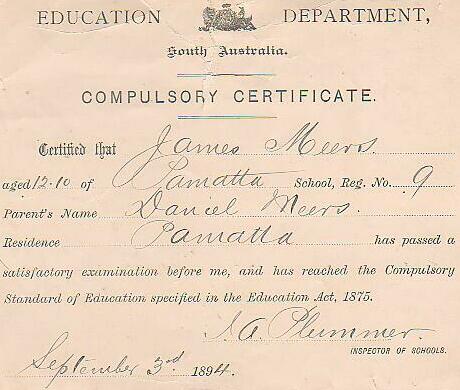 EDUCATION DEPARTMENT,
South Australia.
COMPULSORY CERTIFICATE.
Certified that James Meers.
aged 12.10 of Pamatta School, Reg. No. 9
Parent's Name Daniel Meers.
Residence Pamatta has passed a
satisfactory examination before me, and has reached the Compulsory
Standard of Education specified in the Education Act, 1875.
Plummer.
INSPECTOR OF SCHOOLS.
September 3rd 1894.